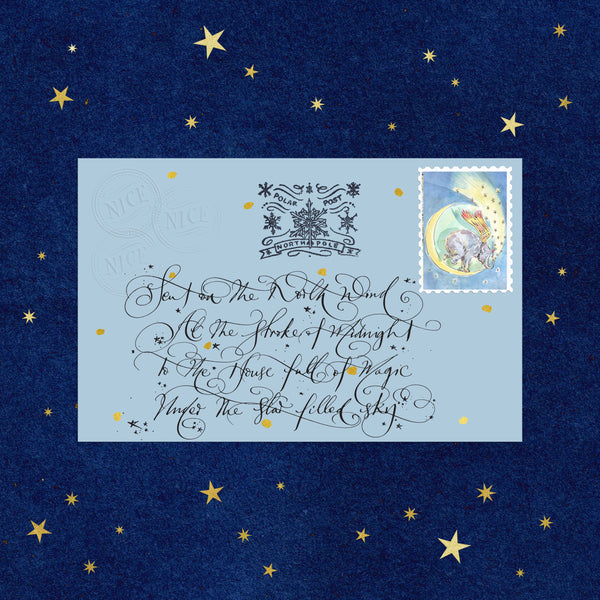 NICE
NICE
NICE
POLAR POST
NORTH POLE
Sent on the North Wind
At the Stroke of Midnight
To the House full of Magic
Under the Star filled sky